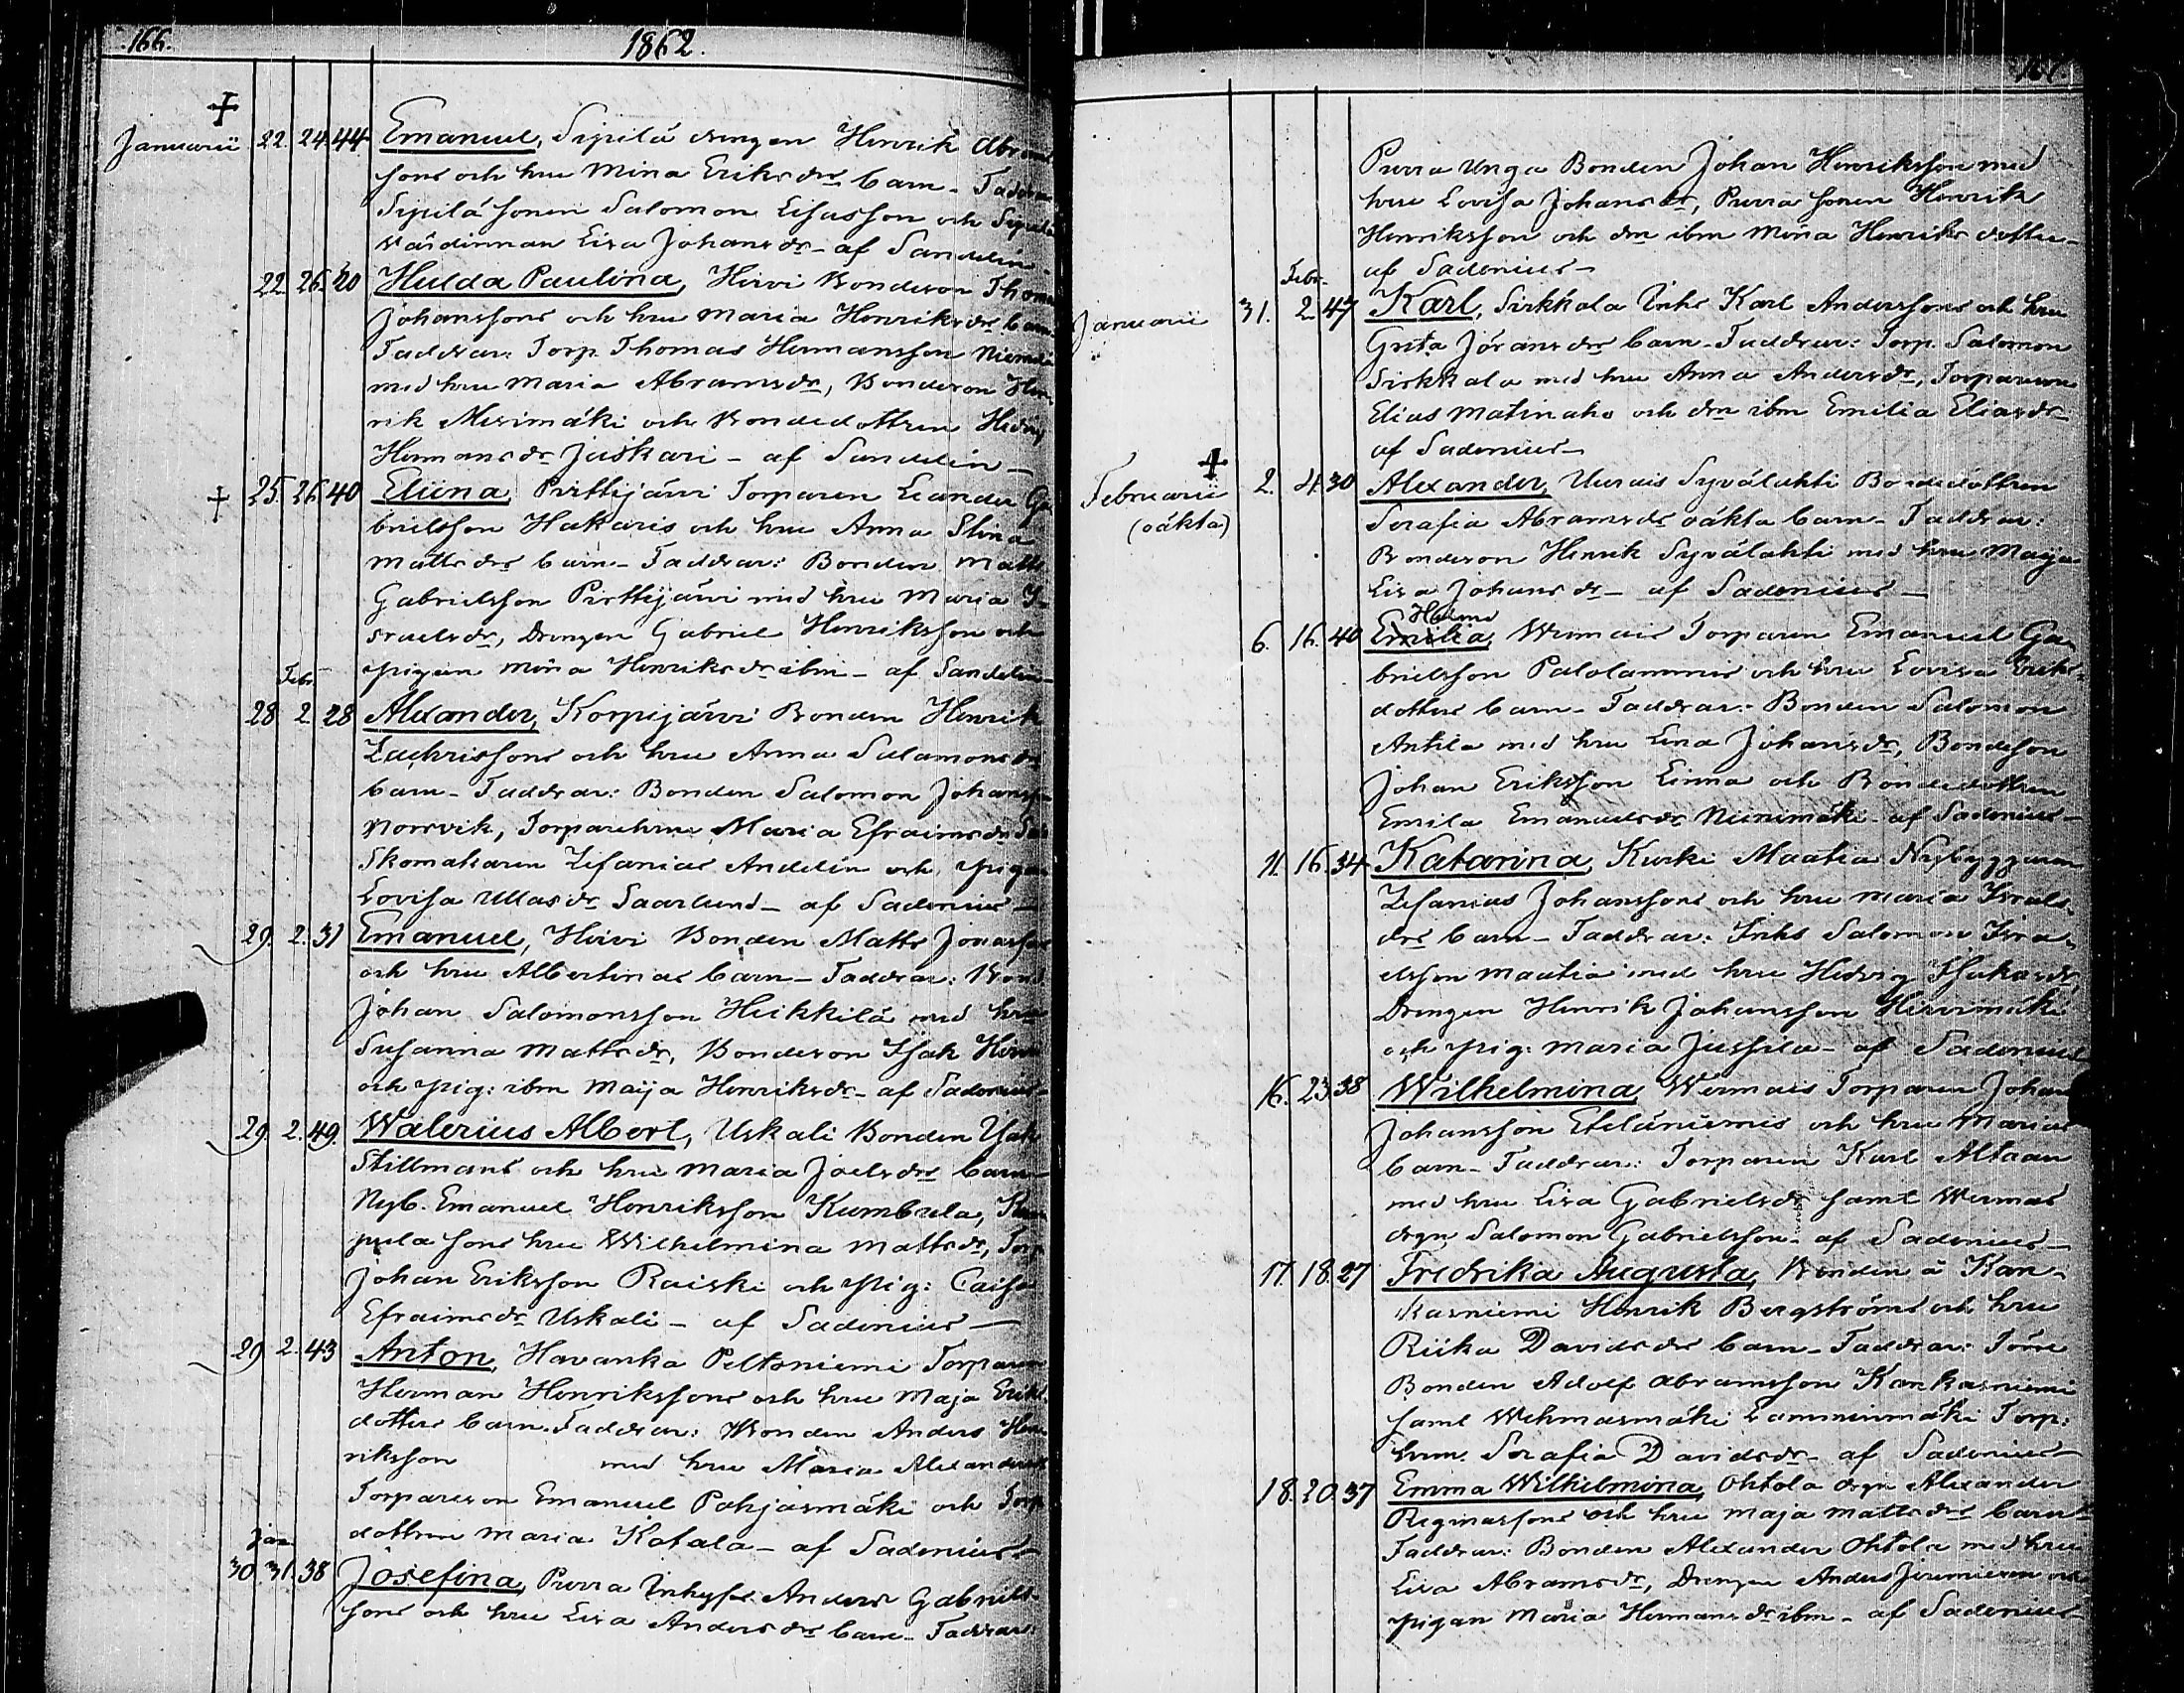 166.
1862.
Januarii 22. 24. 44 Emanuel, Sipilä drengen Henrik Abram
sons och hru Mina Eriksdrs barn - Faddrar
Sipilä sonen Salomon Esaiasson och Sipilä
värdinnan Lisa Johansdr - af Sandelin -
22. 26. 20 Hulda Paulina, Hirvi Bondeson Thomas
Johanssons och hru Maria Henriksdrs barn
Faddrar: Torp. Thomas Hermansson Niemelä
med hru Maria Abramsdr, Bondeson Hen
rik Merimäki och Bondedottren Hedvig
Hermansdr Juskari - af Sandelin -
25. 26. 40 Eliina, Pirttijärvi Torparen Leander Ga
brielsson Hakaris och hru Anna Stina
Mattsdrs barn - Faddrar: Bonden Matts
Gabrielsson Pirttijärvi med hru Maria I-
sraelsdr, Drengen Gabriel Henriksson och
pigan Mina Henriksdr ibm - af Sandelin -
Febr
28 2 28 Alexander, Korpijärvi Bonden Henrik
Zachrissons och hru Anna Salamonsdrs
barn - Faddrar: Bonden Salomon Johansson
Norrvik, Torparehru Maria Efraimsdr
Skomakaren Zefanias Andelin och pigan
Lovisa Ullasdr Saarlund - af Sadenius -
29. 2. 31 Emanuel, Hirvi Bonden Matts Jonassons
och hru Albertinas barn - Faddrar: Bond
Johan Salomonsson Heikkilä med hru
Susanna Mattsdr, Bondeson Isak Hirvi
och pig: ibm Maija Henriksdr - af Sadenius -
29. 2. 49. Walerius Albert, Uskali Bonden Isak
Stillmans och hru Maria Joelsdrs barn -
Nyb. Emanuel Henriksson Kumbula, Kum
pula sons hru Wilhelmina Mattsdr, Torp
Johan Eriksson Raiski och pig: Caisa
Efraimsdr Uskali - af Sadenius -
29 2. 43 Anton, Havanka Peltoniemi Torparen
Herman Henrikssons och hru Maja Eriks
dotters barn. Faddrar: Bonden Anders Hen
riksson med hru Maria Alexandersdr
Torpareson Emanuel Pohjasmäki och Torp
dottren Maria Katala - af Sadenius -
Jan
30. 31. 38 Josefina, Purra Inhyses Anders Gabriels
sons och hru Lisa Andersdrs barn - Faddrar:
Purra Unga Bonden Johan Henriksson med
hru Lovisa Johansdr, Purra sonen Henrik
Henriksson och drn ibm Mina Henriks dotter -
af Sadenius -
Febr.
Januarii 31. 2 47 Karl, Sirkkala Inhs Karl Anderssons och hru
Greta Jöransdrs barn - Faddrar: Torp. Salomon
Sirkkala med hru Anna Andersdr, Torpareson
Elias Matinaho och drn ibm Emilia Eliasdr -
af Sadenius -
Februarii 2. 4. 30 Alexander, Uurais Syvälahti Bondedottren
(oäkta) Serafia Abramsdrs oäkta barn - Faddrar:
Bondeson Henrik Syvälahti med hru Maija
Lisa Johansdr - af Sadenius -
6. 16. 40 Emilia, Wermais Torparen Emanuel Ga
brielsson Palolammis och hru Lovisa Eriks-
dotters barn - Faddrar: Bonden Salomon
Antila med hru Lena Johansdr, Bondeson
Johan Eriksson Linna och Bondedottren
Emila Emanuelsdr Niinimäki - af Sadenius -
11. 16. 34 Katarina, Kurki Maatia Nybyggaren
Zefanias Johanssons och hru Maria Israels
drs barn - Faddrar: Inhs Salomon Isra-
elsson Maatia med hru Hedvig Isaksdr,
Drengen Henrik Johansson Hirvimäki
och pig: Maria Jussila - af Sadenius
16. 23. 38 Wilhelmina, Wermais Torparen Johan
Johansson Eteläniemis och hru Marias
barn - Faddrar: Torparen Karl Altaan
med hru Lisa Gabrielsdr samt Wermas
drgn Salomon Gabrielsson - af Sadenius -
17. 18. 27 Fredrika Augusta, Bonden å Kan-
kasniemi Henrik Bergströms och hru
Riika Davidsdrs barn - Faddrar: Förre
Bonden Adolf Abramsson Kankasniemi
samt Wehmasmäki Lamminmäki Torp:
hrun Serafia Davidsdr - af Sadenius -
18. 20. 37 Emma Wilhelmina, Ohtola drgn Alexander
Reginassons och hru Maja Mattsdrs barn -
Faddrar: Bonden Alexander Ohtola med hru
Lisa Abramsdr, Drengen Anders Jeremiasson och
pigan Maria Hermansdr ibm - af Sadenius -